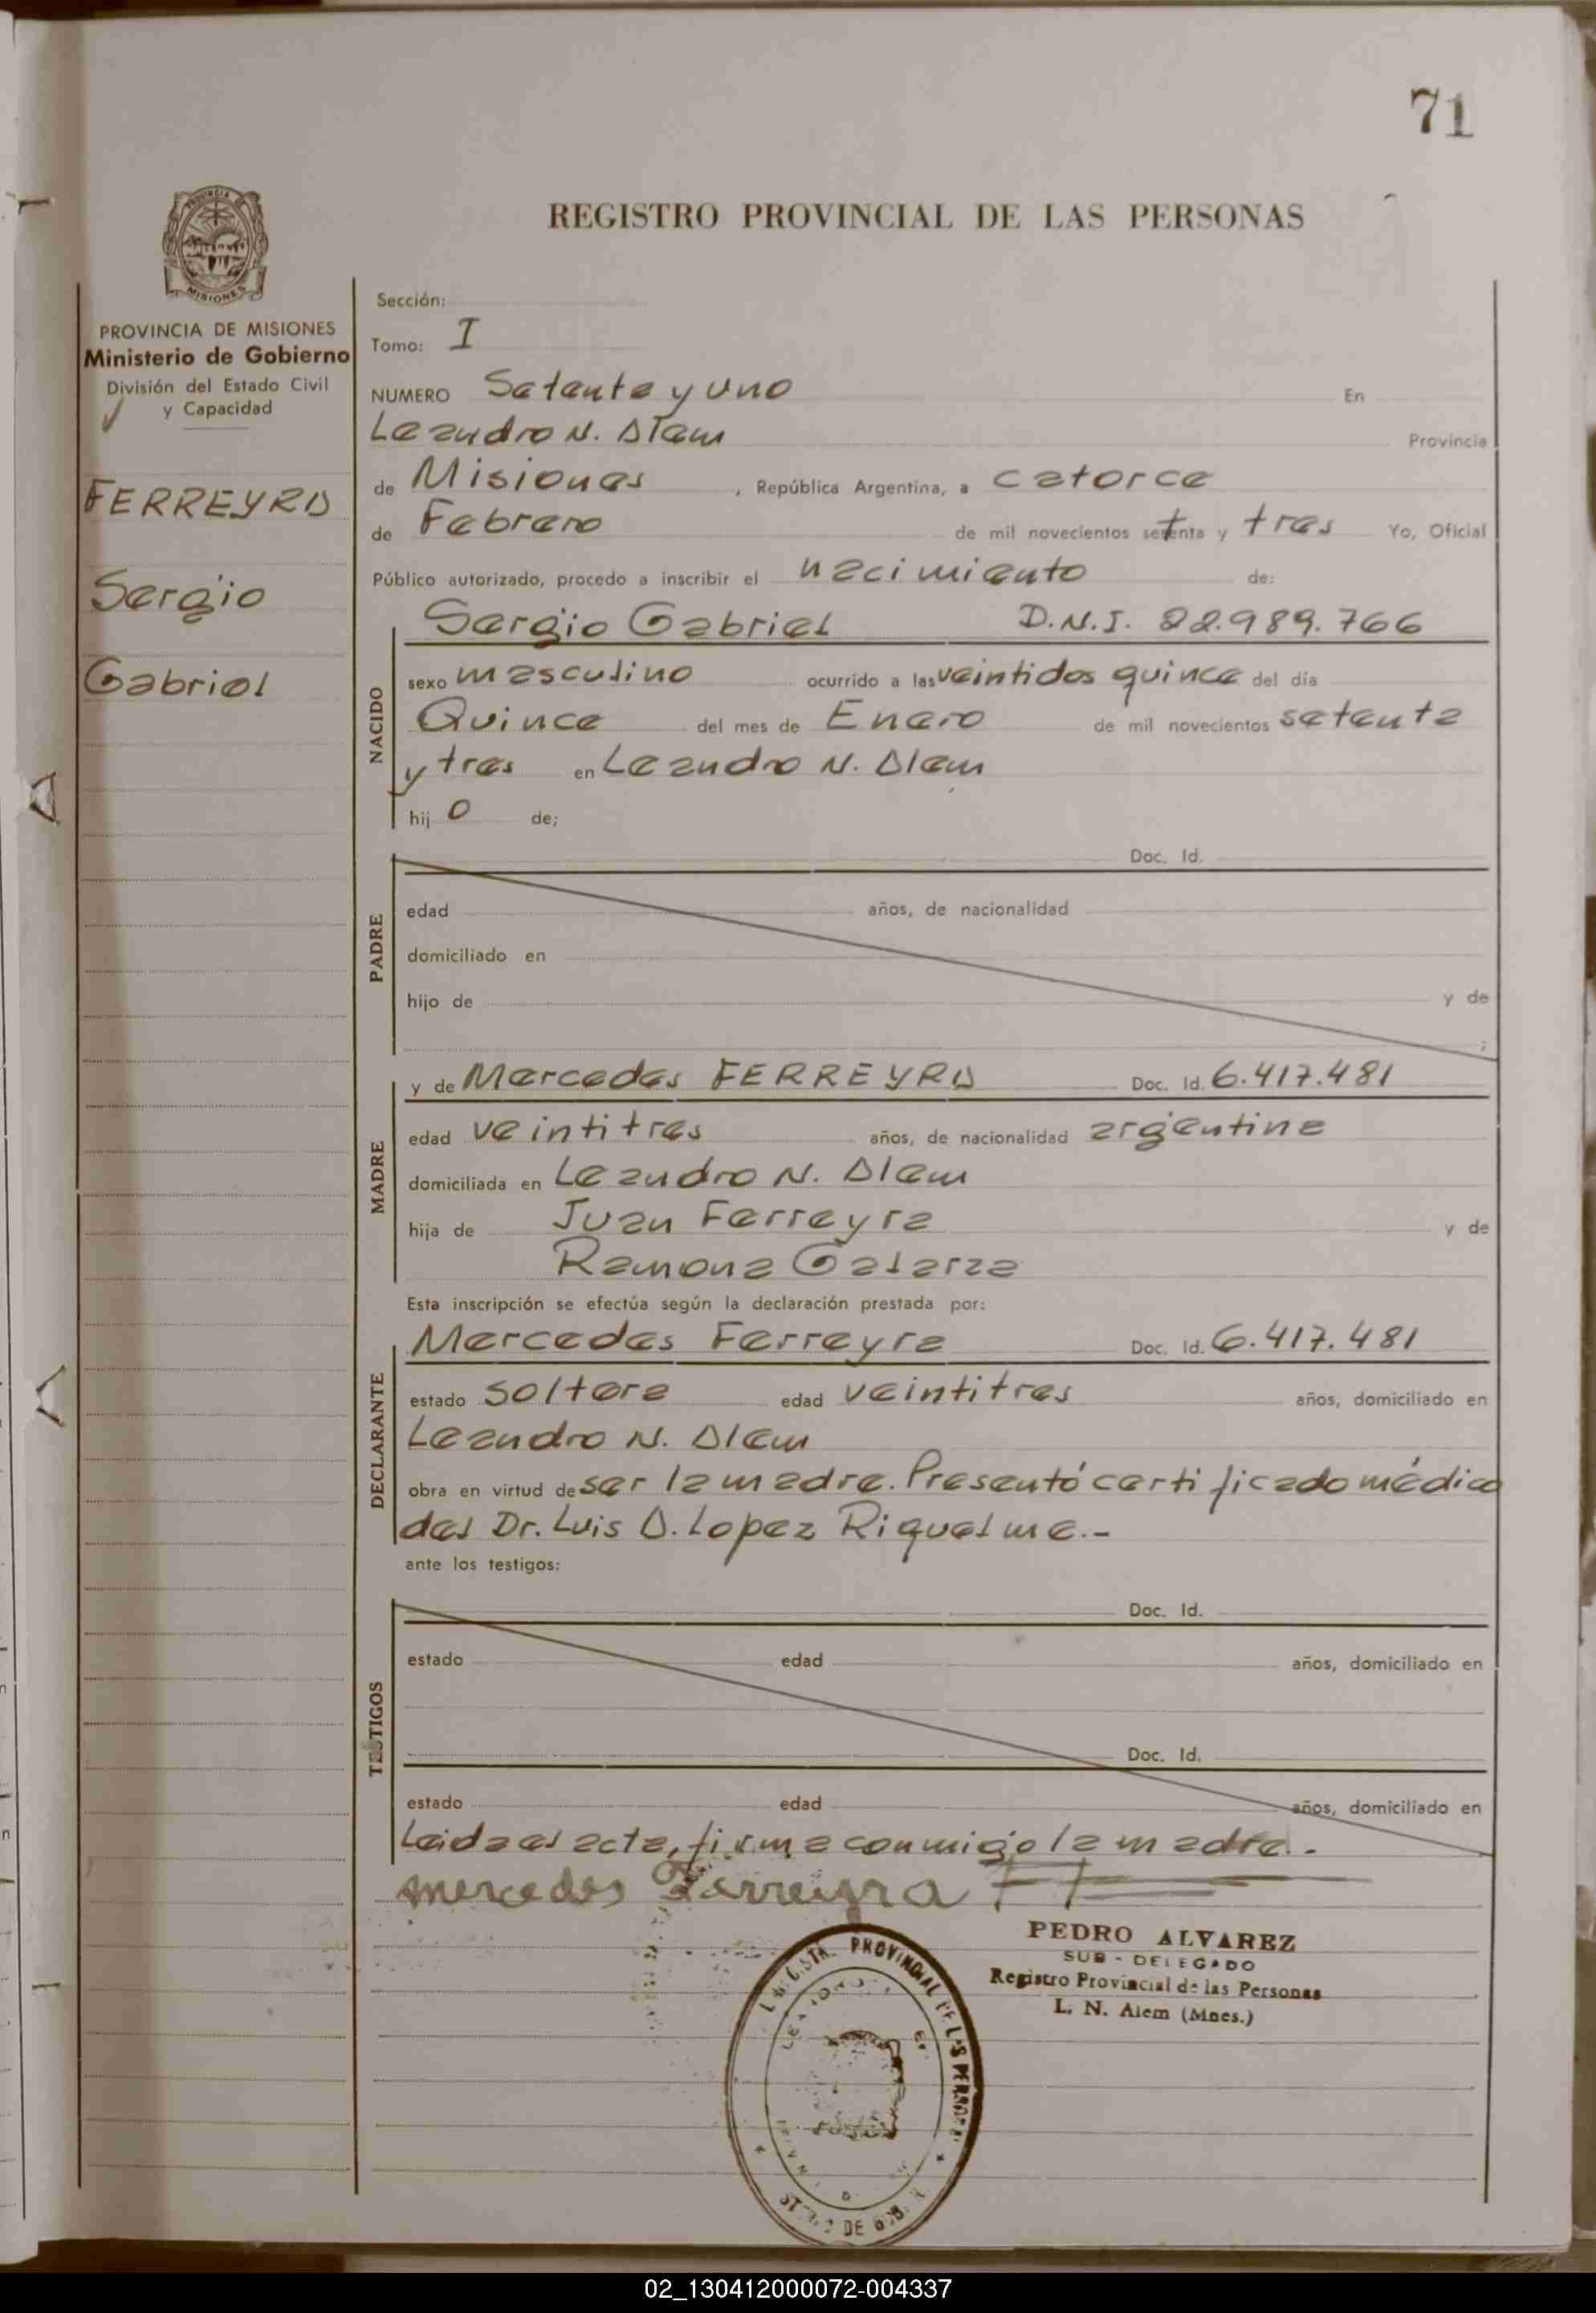 71
REGISTRO PROVINCIAL DE LAS PERSONAS
PROVINCIA DE MISIONES
Ministerio de Gobierno
División del Estado Civil
y Capacidad
FERREYRA
Sergio
Gabriel
Sección:
Tomo: I
NUMERO Setenta y uno En
Leandro N. Alem Provincia
de Misiones, República Argentina, a catorce
de Febrero de mil novecientos setenta y tres Yo, Oficial
Público autorizado, procedo a inscribir el nacimiento de:
NACIDO
Sergio Gabriel D.N.I. 22.989.766
sexo masculino ocurrido a las veintidos quince del día
Quince del mes de Enero de mil novecientos setenta
y tres en Leandro N. Alem
hij o de;
PADRE
Doc. Id.
edad años, de nacionalidad
domiciliado en
hijo de y de
;
MADRE
y de Mercedes FERREYRA Doc. Id. 6.417.481
edad veintitres años, de nacionalidad argentina
domiciliada en Leandro N. Alem
hija de Juan Ferreyra y de
Ramona Galarza
Esta inscripción se efectúa según la declaración prestada por:
DECLARANTE
Mercedes Ferreyra Doc. Id. 6.417.481
estado soltera edad veintitres años, domiciliado en
Leandro N. Alem
obra en virtud de ser la madre. Presentó certificado médico
del Dr. Luis A. Lopez Riquelme.-
ante los testigos:
TESTIGOS
Doc. Id.
estado edad años, domiciliado en
Doc. Id.
estado edad años, domiciliado en
Leida el acta, firma conmigo la madre.-
mercedes Ferreyra
PEDRO ALVAREZ
SUB - DELEGADO
Registro Provincial de las Personas
L. N. Alem (Mnes.)
PROVINCIAL
02_130412000072-004337